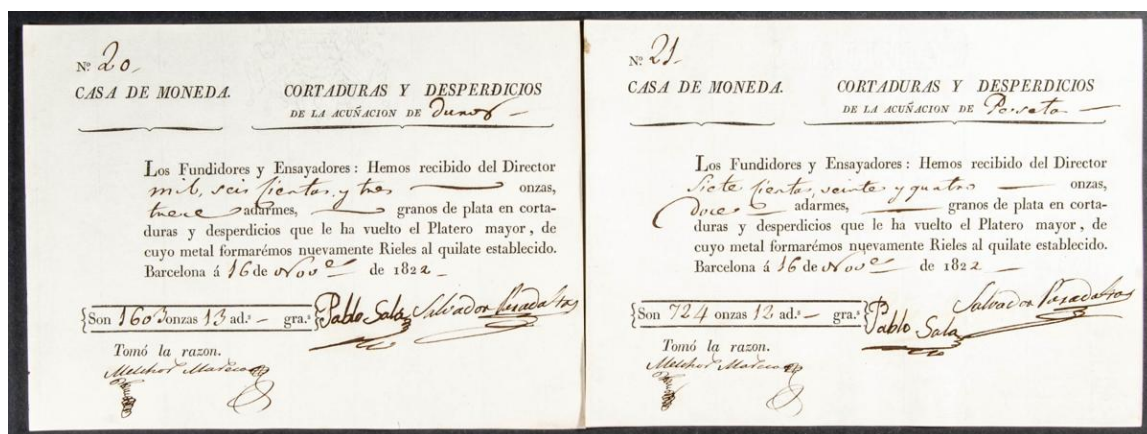 Nº 20
CASA DE MONEDA.
CORTADURAS Y DESPERDICIOS
DE LA ACUÑACION DE Duros
Los Fundidores y Ensayadores : Hemos recibido del Director
mil, seis cientas, y tres onzas,
trece adarmes, granos de plata en corta-
duras y desperdicios que le ha vuelto el Platero mayor, de
cuyo metal formarémos nuevamente Rieles al quilate establecido.
Barcelona á 16 de Nov.e de 1822
Son 1603 onzas 13 ad.s - gra.s
Pablo Sala
Salvador
Tomó la razon.
Melchor
Nº 21
CASA DE MONEDA.
CORTADURAS Y DESPERDICIOS
DE LA ACUÑACION DE Peseta
Los Fundidores y Ensayadores : Hemos recibido del Director
Siete cientas, veinte y quatro onzas,
Doce adarmes, granos de plata en corta-
duras y desperdicios que le ha vuelto el Platero mayor, de
cuyo metal formarémos nuevamente Rieles al quilate establecido.
Barcelona á 16 de Nov.e de 1822
Son 724 onzas 12 ad.s - gra.s
Pablo Sala
Salvador
Tomó la razon.
Melchor